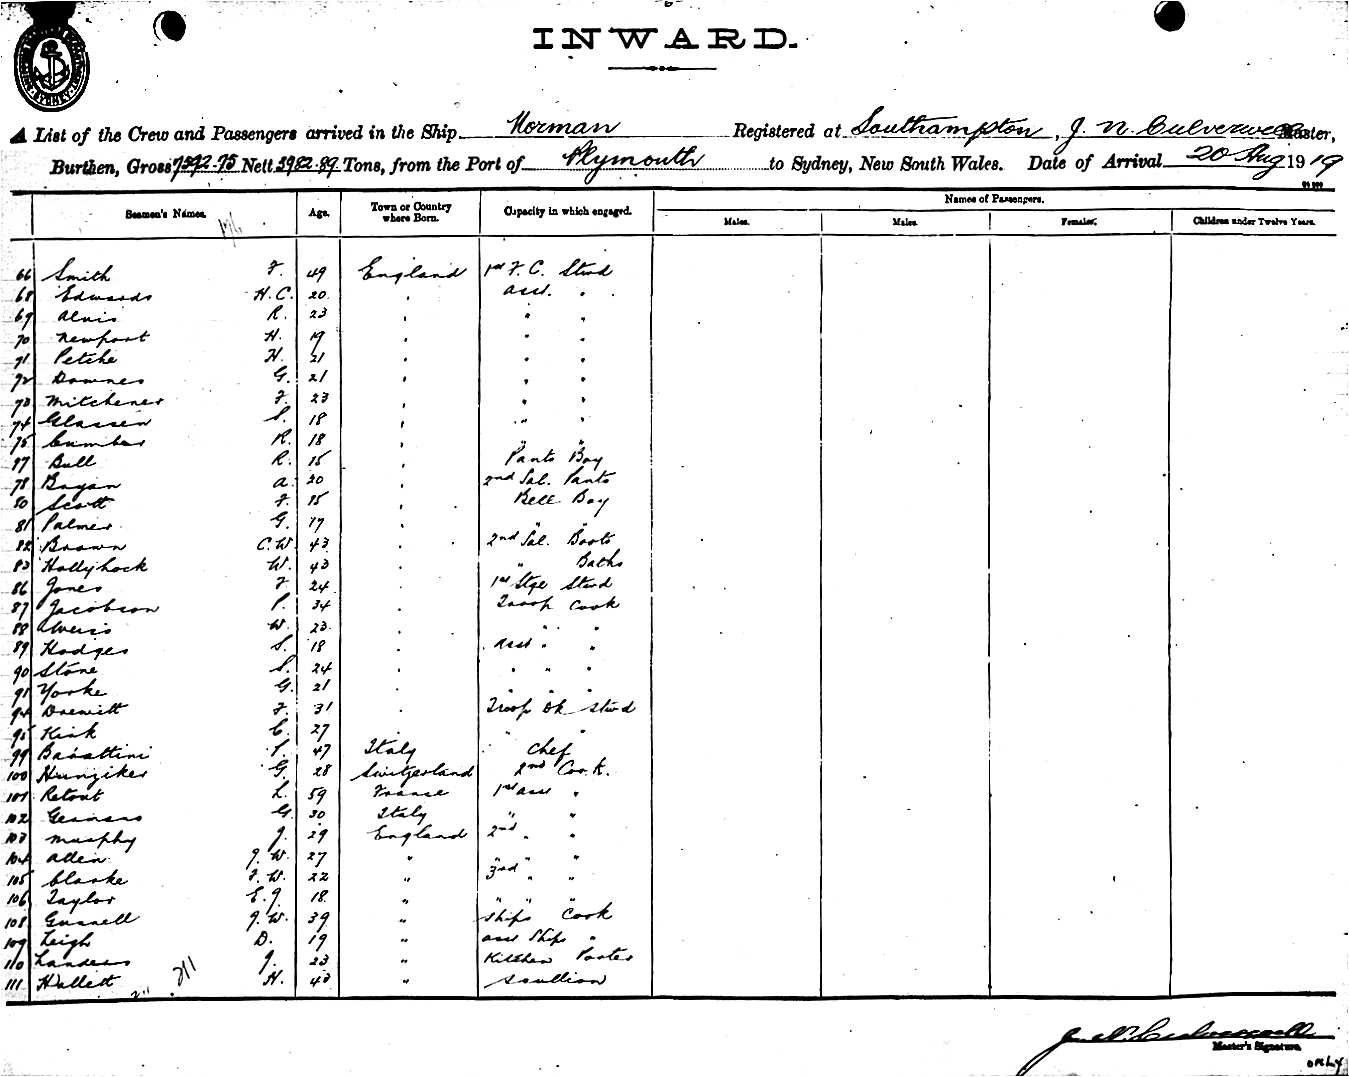 INWARD.
A List of the Crew and Passengers arrived in the Ship Norman Registered at Southampton, J. N. Culverwell Master,
Burthen, Gross 7392.75 Nett 3982.89 Tons, from the Port of Plymouth to Sydney, New South Wales. Date of Arrival 20 Aug 1919
Seamen's Names. Age. Town or Country where Born. Capacity in which engaged. Names of Passengers.
Males. Males. Females. Children under Twelve Years.
66 Smith F. 49 England 1st F. C. Stwd
68 Edwards H. C. 20 " asst. "
69 Alvis R. 23 " " "
70 Newport H. 19 " " "
71 Petche H. 21 " " "
72 Downes G. 21 " " "
73 Mitchener F. 23 " " "
74 Glassen S. 18 " " "
75 Cumber R. 18 " " "
77 Bull R. 15 " Pants Boy
78 Bryan A. 20 " 2nd Sal. Pants
80 Scott F. 15 " Bell Boy
81 Palmer G. 17 " " "
82 Brown C. W. 43 " 2nd Sal. Boots
83 Hollyhock W. 43 " " Baths
86 Jones F. 24 " 1st Stge Stwd
87 Jacobson P. 34 " Troop Cook
88 Weiss W. 23 " " "
89 Hodges S. 18 " asst " "
90 Stone S. 24 " " " "
91 Yorke G. 21 " " " "
94 Drewitt F. 31 " Troop Stwd
95 Kirk C. 27 " "
99 47 Italy Chef
100 Hunziker G. 28 Switzerland 2nd Cook.
101 Retout L. 59 France 1st asst "
102 G. 30 Italy " "
103 Murphy J. 29 England 2nd " "
104 Allen J. W. 27 " " " "
105 Clarke F. W. 22 " 3rd " "
106 Taylor E. J. 18 " " " "
108 Gunnell J. W. 39 " Ships Cook
109 Leigh D. 19 " asst Ships "
110 Landers J. 23 " Kitchen Porter
111 Hallett H. 43 " Scullion
211
J. N. Culverwell
Master's Signature.
ONLY